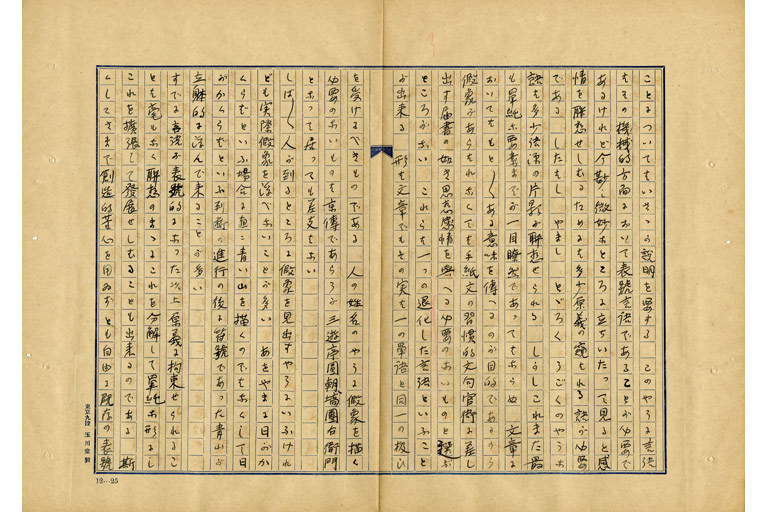 ことについてもいさゝかの説明を要する このやうな言語
もその機械的方面において表號言語であることが必要で
あるけれど今數歩微妙なところに立ちいたつて見ると感
情を聯想せしむるためにも多少原義の窺はれる 訣が必要
である したもし やまし とゞろく うごくのやうな
語も多少語源の片影が聯想せられる しかしこれまた最
も單純な要素までが一目瞭然であつてもならぬ 文章に
おいてももと〳〵ある意味を傳へるのが目的であるから
假象があらはれなくても手紙文の習慣的文句官衙に差し
出す届書の如き思想感情を與へる必要のないものと選ぶ
ところがない これらも一つの退化した言語といふこと
が出來る 形も文章でもその実も一の單語と同一の扱ひ
を受けるべきものである 人の姓名のやうな假象を描く
必要のないものも京傳であらうが三遊亭圓朝塙團右衛門
とあつて在つても差支もない
しば〳〵人が到るところに假象を見出すやうにいふけれ
ども実際假象を浮べないことが多い あをやまに日がか
くらばといふ場合に直に青い山を描くのでもなくして日
がかくらばといふ判斷の進行の後に符號であつた青山が
立躰的に浮んで來ることが多い
すでに言語が表號的になつた以上原義に拘束せられるこ
とも毫もなく聯想のまゝにこれを分解して單純な形にし
これを擴張して發展せしむることも出來るのである 斯
くしてさまで創造的苦心を用ゐずとも自由に既存の表號
東京九段 玉川堂製
12…25